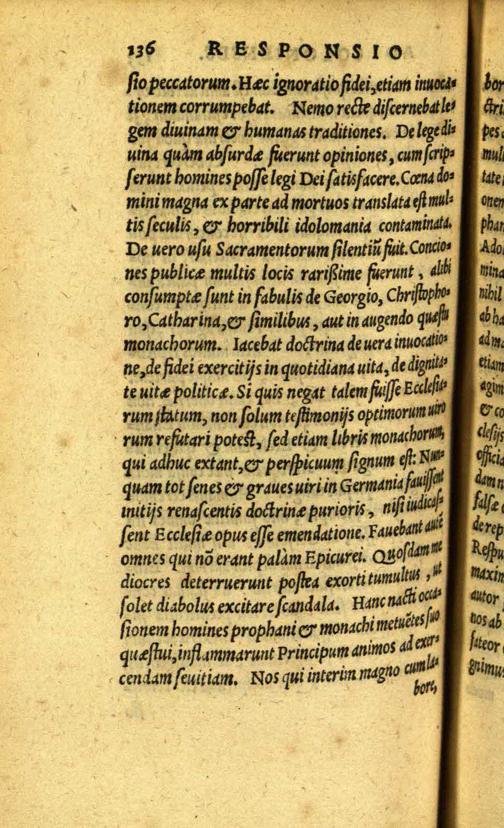 136 RESPONSIO
sio peccatorum. Hæc ignoratio fidei, etiam inuoca-
tionem corrumpebat. Nemo recte discernebat le-
gem diuinam & humanas traditiones. De lege di-
uina quàm absurdæ fuerunt opiniones, cum scrip-
serunt homines posse legi Dei satisfacere. Cœna do-
mini magna ex parte ad mortuos translata est mul-
tis seculis, & horribili idolomania contaminata.
De uero usu Sacramentorum silentiũ fuit. Concio-
nes publicæ multis locis rarißime fuerunt, alibi
consumptæ sunt in fabulis de Georgio, Christopho-
ro, Catharina, & similibus, aut in augendo quæstu
monachorum. Iacebat doctrina de uera inuocatio-
ne, de fidei exercitijs in quotidiana uita, de dignita-
te uitæ politicæ. Si quis negat talem fuisse Ecclesia-
rum statum, non solum testimonijs optimorum uiro
rum refutari potest, sed etiam libris monachorum,
qui adhuc extant, & perspicuum signum est: Nun-
quam tot senes & graues uiri in Germania fauissent
initijs renascentis doctrinæ purioris, nisi iudicas-
sent Ecclesiæ opus esse emendatione. Fauebant autẽ
omnes qui nõ erant palàm Epicurei. Quosdam me
diocres deterruerunt postea exorti tumultus, ut
solet diabolus excitare scandala. Hanc nacti occa-
sionem homines prophani & monachi metuẽtes suo
quæstui, inflammarunt Principum animos ad exer-
cendam seuitiam. Nos qui interim magno cum la-
bore,
bor
ctri
pes
mul
tate
onem
phan
Ado
mina
nihil
ab ha
ad m
etiam
agim
& co
clesijs
officia
dam n
falsæ
de rep
Respu
maxim
autor
nos ab
fateor
gnimus